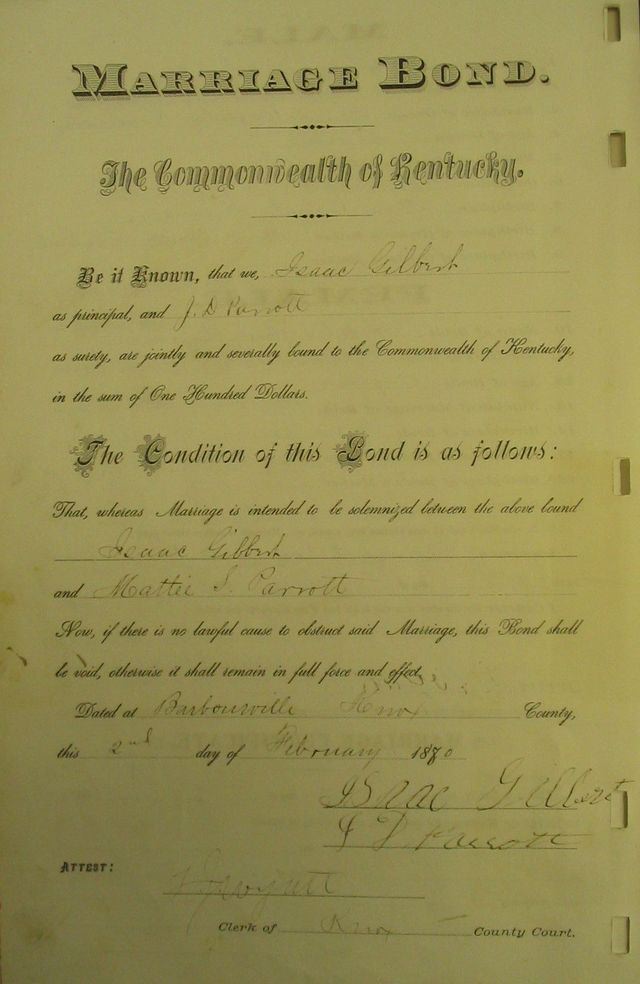 MARRIAGE BOND.
The Commonwealth of Kentucky.
Be it Known, that we, Isaac Gilbert
as principal, and J. D Parrott
as surety, are jointly and severally bound to the Commonwealth of Kentucky,
in the sum of One Hundred Dollars.
The Condition of this Bond is as follows:
That, whereas Marriage is intended to be solemnized between the above bound
Isaac Gilbert
and Mattie S. Parrott
Now, if there is no lawful cause to obstruct said Marriage, this Bond shall
be void, otherwise it shall remain in full force and effect.
Dated at Barbourville Knox County,
this 2nd day of February 1880
Isaac Gilbert
J D Parrott
ATTEST:
Clerk of Knox County Court.